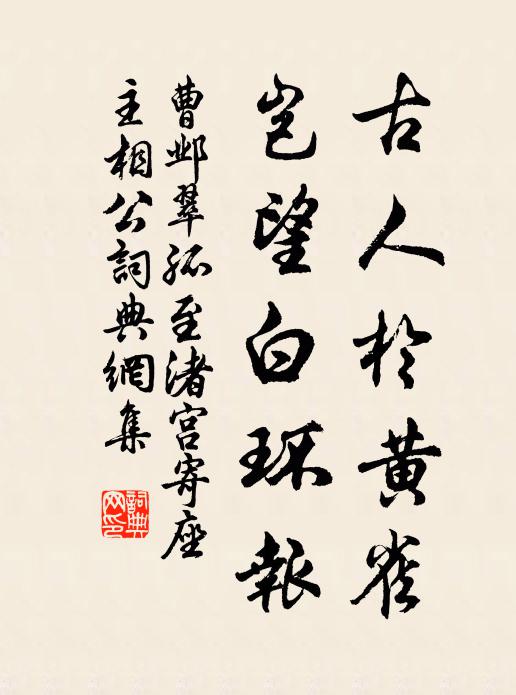 古人於黄雀
岂望白环報
曹邺翠孤至渚宫寄座
主相公詞典網集
詞典
网印